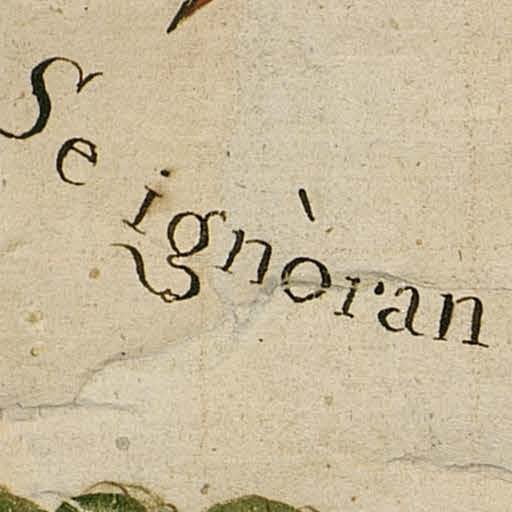 Seignòran